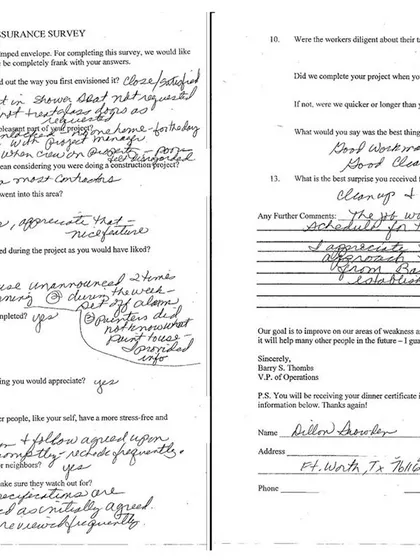 SSURANCE SURVEY
mped envelope. For completing this survey, we would like
e be completely frank with your answers.
d out the way you first envisioned it? Close/satisfied
t in Shower Seat not requested
not treat glass doors as
requested
leasant part of your project?
no one home - for the day
with Project manager
When crew on Property - poor
felt disregarded
ean considering you were doing a construction project?
most contractors
went into this area?
s, appreciate that -
nice feature
ed during the project as you would have liked?
use unannounced 2 times
② during the week -
set off alarm
③ painters did
not know what
paint to use -
I provided
info
mpleted? yes
ing you would appreciate? yes
er people, like your self, have a more stress-free and
n + follow agreed upon
promptly - recheck frequently.
r neighbors? yes
ake sure they watch out for?
pecifications are
d as initially agreed.
reviewed frequently.
10. Were the workers diligent about their t
Did we complete your project when yo
If not, were we quicker or longer than y
What would you say was the best thing
Good Workma
Good Clea
13. What is the best surprise you received f
Cleanup +
Any Further Comments: The job w
schedule for t
I appreciate
approach
from Ba
establish
Our goal is to improve on our areas of weakness a
it will help many other people in the future – I gua
Sincerely,
Barry S. Thombs
V.P. of Operations
P.S. You will be receiving your dinner certificate i
information below. Thanks again!
Name Dillon Snowden
Address
Ft. Worth, Tx 76116
Phone